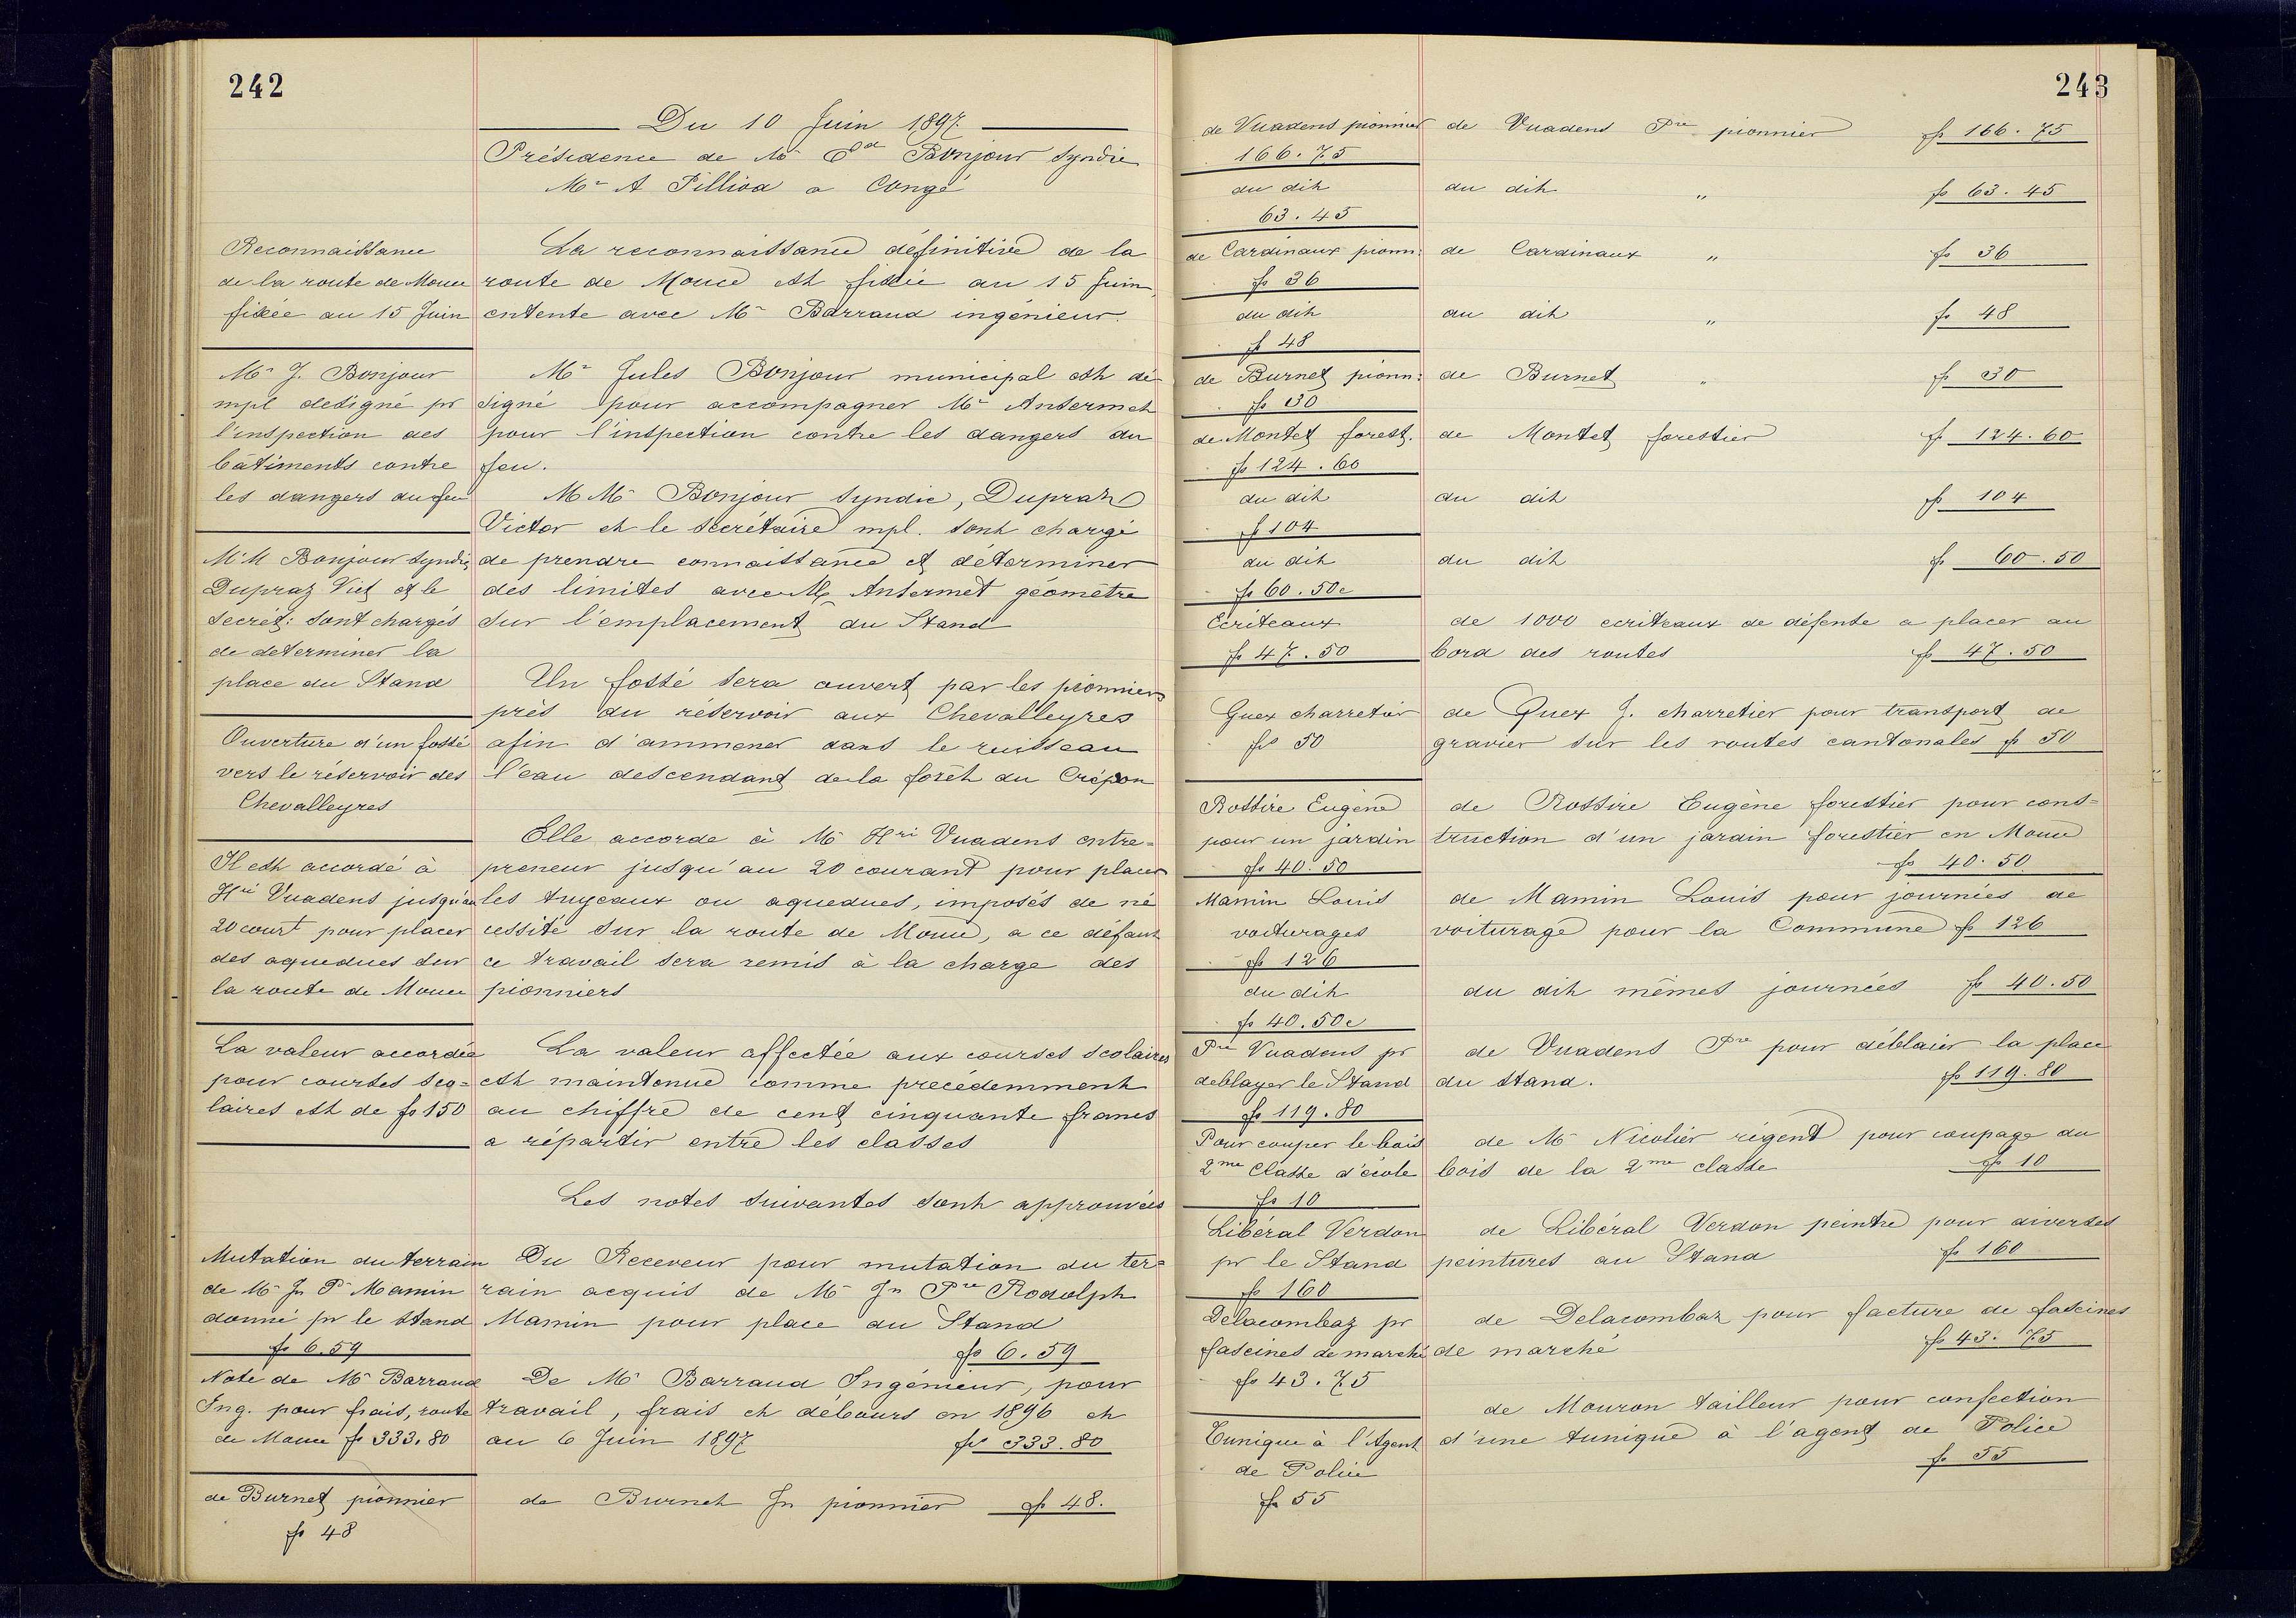 242
Du 10 Juin 1897.
Présidence de Mr Ed Bonjour Syndic
Mr A Pilliod a Congé
Reconnaissance
de la route de Mouce
fixée au 15 Juin
La reconnaissance définitive de la
route de Mouce est fixée au 15 Juin,
entente avec Mr Barraud ingénieur.
Mr J. Bonjour
mpl designé pr
l'inspection des
bâtiments contre
les dangers du feu
Mr Jules Bonjour municipal est dé
signé pour accompagner Mr Ansermet
pour l'inspection contre les dangers du
feu.
Mr M Bonjour Syndic,
Dupraz Vict et le
Secrét: sont chargés
de determiner la
place du Stand
M Mr Bonjour Syndic, Dupraz
Victor et le Secrétaire mpl. sont chargé
de prendre connaissance et déterminer
des limites avec Mr Ansermet géomètre
sur l'emplacement du Stand
Ouverture d'un fossé
vers le réservoir des
Chevalleyres
Un fossé sera ouvert par les pionniers
près du réservoir aux Chevalleyres
afin d'ammener dans le ruisseau
l'eau descendant de la forêt du Crépon
Il est accordé à
Hri Vuadens jusqu'au
20 court pour placer
des aqueducs sur
la route de Mouce
Elle accorde à Mr Hri Vuadens entre=
preneur jusqu'au 20 courant pour placer
les tuyeaux ou aqueducs, imposés de né
cessité sur la route de Mouce, a ce défaut
ce travail sera remis à la charge des
pionniers
La valeur accordée
pour courses sco=
laires est de fs 150
La valeur affectée aux courses scolaires
est maintenue comme precédemment
au chiffre de cent cinquante francs
a répartir entre les classes
Les notes suivantes sont approuvées
Mutation du terrain
de Mr Jn Pr Mamin
donné pr le stand
fs 6.59
Du Receveur pour mutation du ter=
rain acquis de Mr Jn Pre Rodolph
Mamin pour place du Stand
fs 6.59
Note de Mr Barraud
Ing. pour frais, route
de Mouce fs 333.80
De Mr Barraud Ingénieur, pour
travail, frais et débours en 1896 et
au 6 Juin 1897 fs 333.80
de Burnet pionnier
fs 48
de Burnet Jn pionnier fs 48.
243
de Vuadens pionnier
166.75
de Vuadens Pre pionnier fs 166.75
du dit
63.45
du dit " fs 63.45
de Cardinaux pionn:
fs 36
de Cardinaux " fs 36
du dit
fs 48
du dit " fs 48
de Burnet pionn:
fs 30
de Burnet " fs 30
de Montet forest.
fs 124.60
de Montet forestier fs 124.60
du dit
fs 104
du dit fs 104
du dit
fs 60.50c
du dit fs 60.50
Ecriteaux
fs 47.50
de 1000 ecriteaux de défense a placer au
bord des routes fs 47.50
Guex charretier
fs 50
de Guex J. charretier pour transport de
gravier sur les routes cantonales fs 50
Rossire Eugène
pour un jardin
fs 40.50
de Rossire Eugène forestier pour cons=
truction d'un jardin forestier en Mouce
fs 40.50
Mamin Louis
voiturages
fs 126
de Mamin Louis pour journées de
voiturage pour la Commune fs 126
du dit
fs 40.50c
du dit mêmes journées fs 40.50
Pre Vuadens pr
deblayer le Stand
fs 119.80
de Vuadens Pre pour déblaier la place
du stand. fs 119.80
Pour couper le bois
2me Classe d'école
fs 10
de Mr Nicolier régent pour coupage du
bois de la 2me classe fs 10
Libéral Verdon
pr le Stand
fs 160
de Libéral Verdon peintre pour diverses
peintures au Stand fs 160
Delacombaz pr
fascines de marché
fs 43.75
de Delacombaz pour facture de fascines
de marché fs 43.75
Tunique à l'Agent
de Police
fs 55
de Mouron tailleur pour confection
d'une tunique à l'agent de Police
fs 55